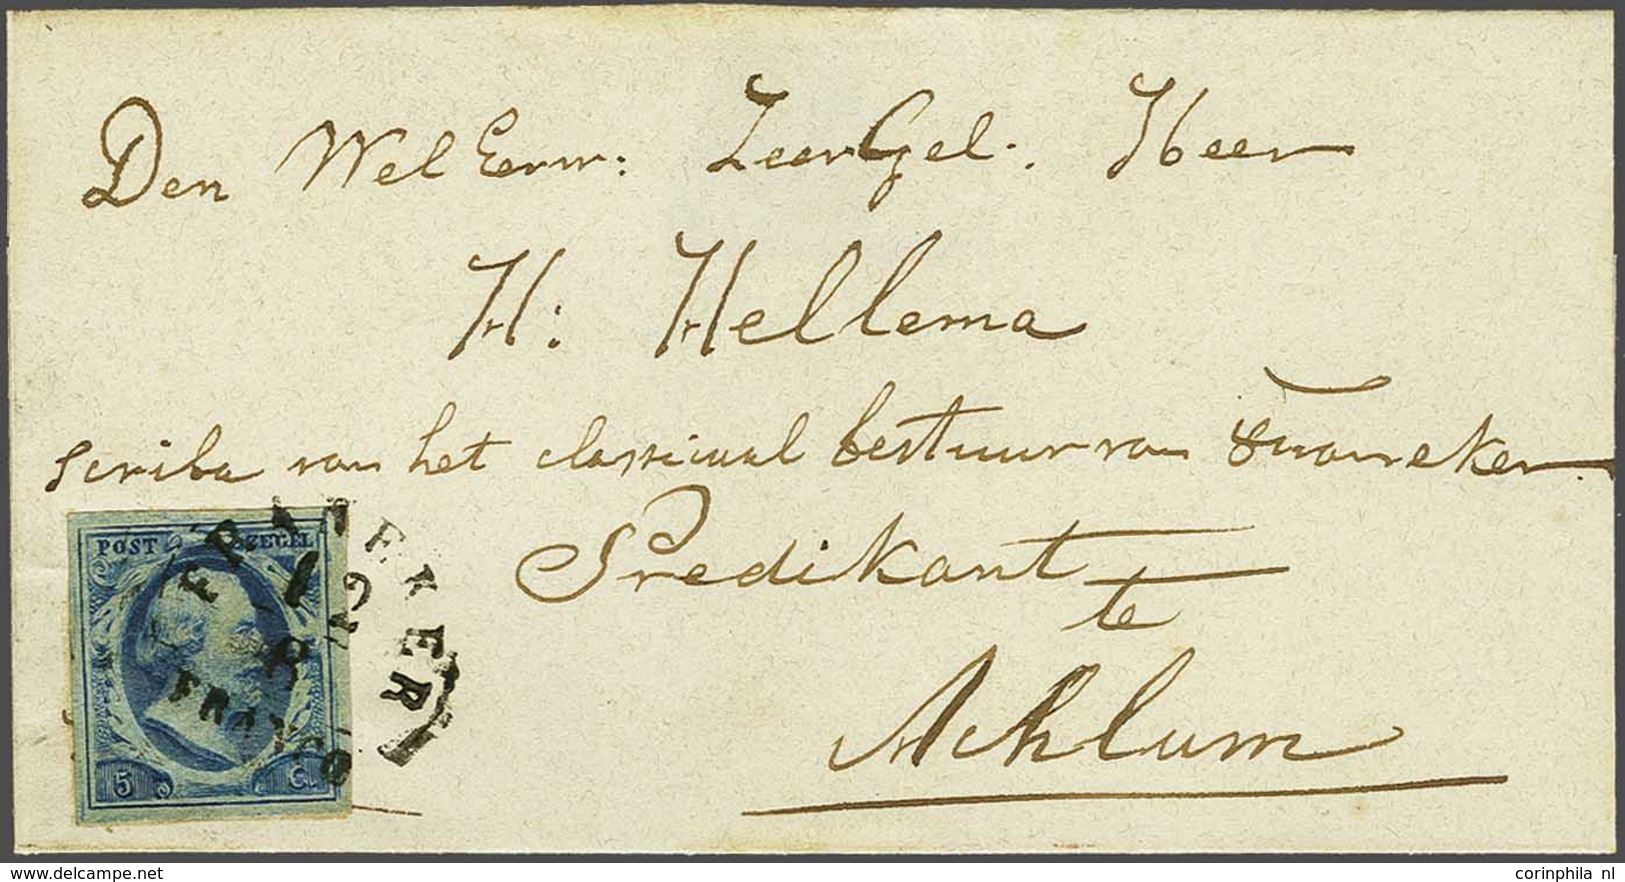 Den WelEerw: ZeerGel. Heer
H: Hellema
Scriba van het classicaal bestuur van Franeker
Predikant
te
Achlum
POST ZEGEL
5 C.
FRANEKER
FRANCO
delcampe.net
corinphila nl